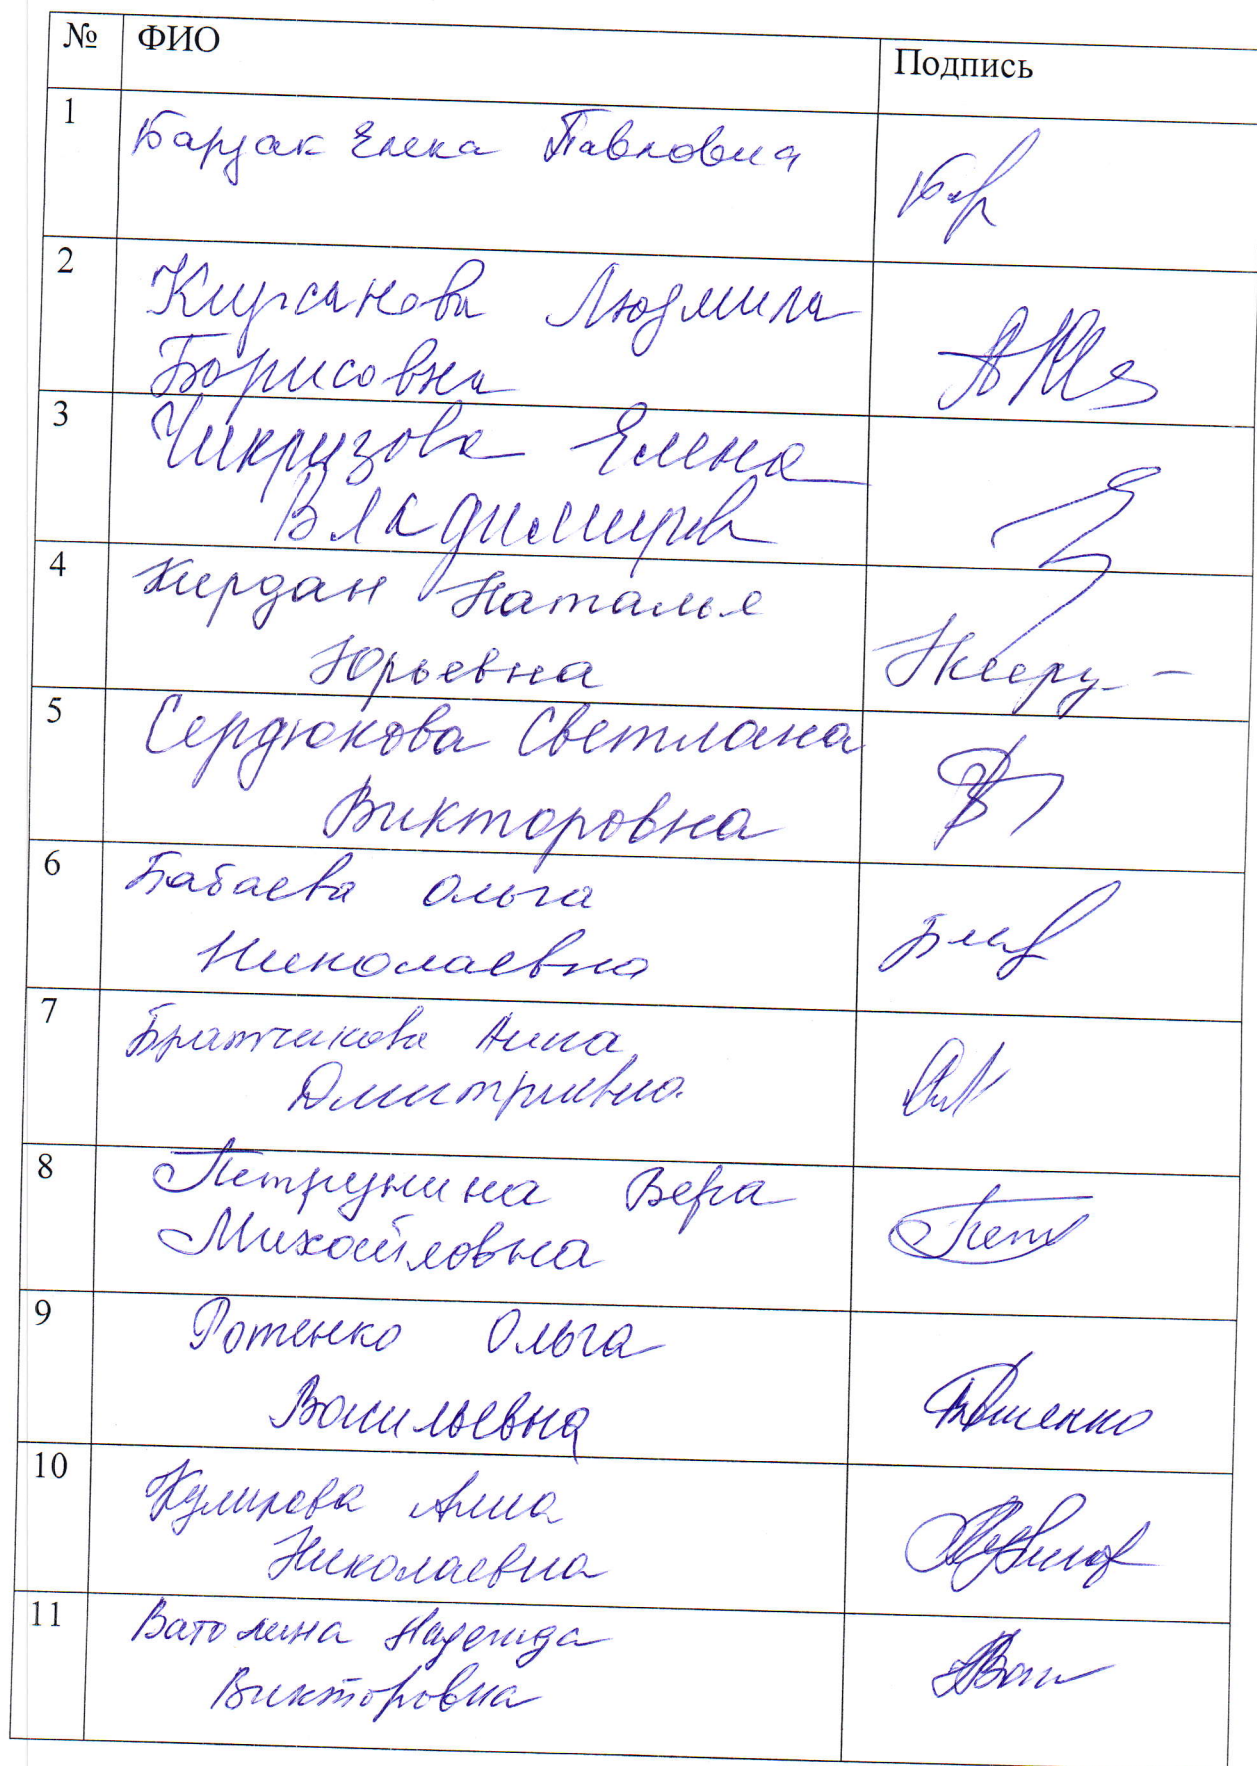 № ФИО Подпись
1 Барзак Елена Павловна
Бар
2 Кирсанова Людмила
Борисовна
3 Чикризова Елена
Владимиров
4 Кирдан Наталья
Юрьевна
5 Сердюкова Светлана
Викторовна
6 Бабаева Ольга
Николаевна
7 Братчикова Анна
Дмитриевна
8 Петрунина Вера
Михайловна
Пет
9 Ротенко Ольга
Васильевна
10 Анна
Николаевна
11 Ватолина Надежда
Викторовна